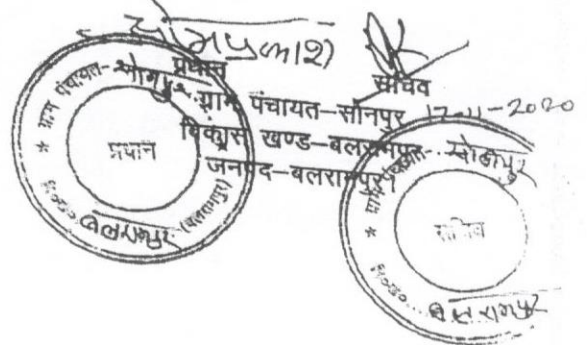 ओमप्रकाश
प्रधान सचिव
ग्राम पंचायत-सोनपुर 17-11-2020
विकास खण्ड-बलरामपुर
जनपद-बलरामपुर।
* ग्राम पंचायत-सोनपुर
प्रधान
वि०ख० बलरामपुर (बलरामपुर)
* ग्राम पंचायत-
सचिव
वि०ख० बलरामपुर